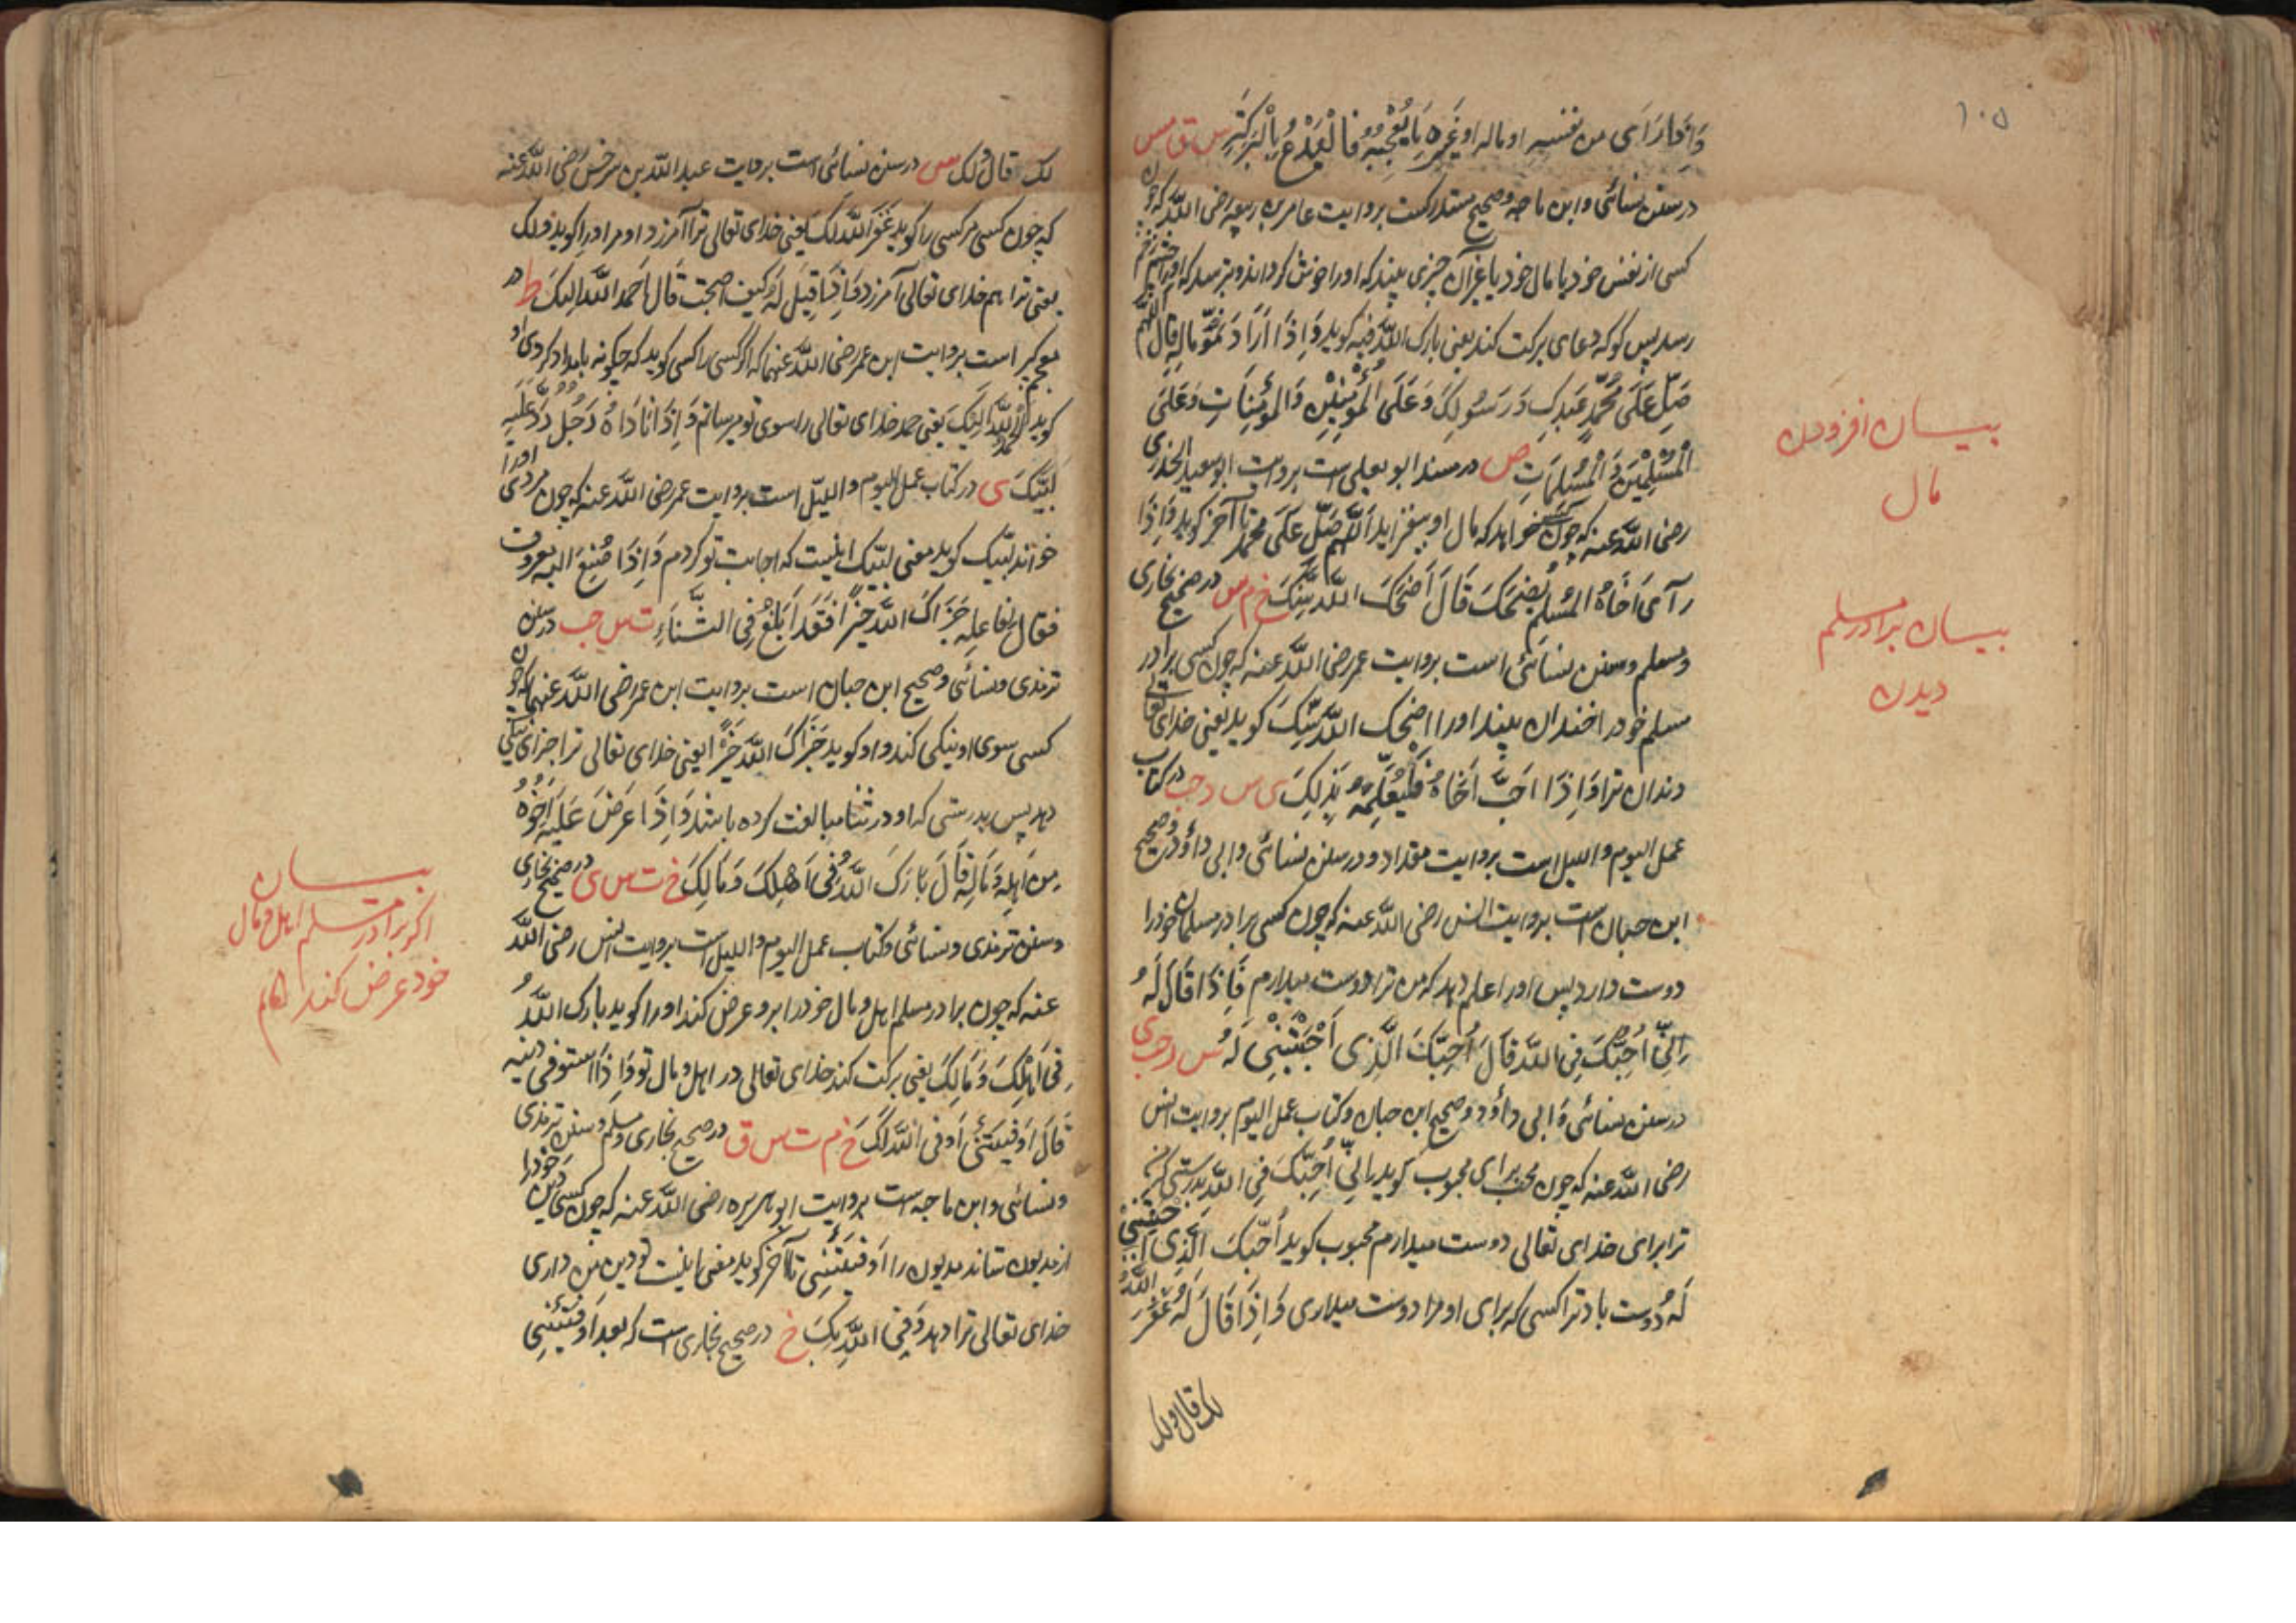 ١٠٥
وَاِذَا رَاَى من نفسه او ماله او غَيرِهِ مَا يُعْجِبُهُ فَالْيَدْعُ بِالْبَرَكَةِ س ق مس
در سنن نسائی و ابن ماجه و صحیح مستدرکست بروایت عامر بن ربیعه رضی الله که چون
کسی از نفس خود یا مال خود یا غیر آن چیزی بیند که او را خوش گرداند و بترسد که او را چشم زخم
رسد پس کو که دعای برکت کند یعنی بارک الله فیه کوید وَاِذَا اَرَادَ نُمُوَّ مَالِهِ قَالَ اللّٰهُمَّ
صَلِّ عَلَى مُحَمَّدٍ عَبْدِكَ وَرَسُولِكَ وَعَلَى الْمُؤْمِنِيْنَ وَالْمُؤْمِنَاتِ وَعَلَى
الْمُسْلِمِيْنَ وَالْمُسْلِمَاتِ ص در مسند ابو یعلی است بروایت ابو سعید الخدری
رضی الله عنه که چون خواهد که مال او بیفزاید اللّٰهم صَلِّ عَلَى محمد تا آخر کوید وَاِذَا
رَآى اَخَاهُ المُسْلِمَ يَضْحَكُ قَالَ اَضْحَكَ اللّٰه سِنَّكَ خ م س در صحیح بخاری
و مسلم و سنن نسائی است بروایت عمر رضی الله عنه که چون کسی برادر
مسلم خود را خندان بیند او را اضحک اللّٰه سِنَّكَ کوید یعنی خدای تعالی
دندان ترا وَاِذَا اَحَبَّ اَخَاهُ فَلْيُعْلِمْهُ بَذٰلِكَ ی س د حب در کتاب
عمل الیوم و اللیل است بروایت مقداد و در سنن نسائی و ابی داؤد و صحیح
ابن حبان است بروایت انس رضی الله عنه که چون کسی برادر مسلمان خود را
دوست دارد پس او را اعلم دهد که من ترا دوست میدارم فَاِذَا قَالَ لَهُ
اِنِّى اُحِبُّكَ فِى اللّٰه قَالَ اُحِبَّكَ الَّذِى اَحْبَبْتَنِى لَهُ س د حب ی
در سنن نسائی و ابی داؤد و صحیح ابن حبان و کتاب عمل الیوم بروایت انس
رضی الله عنه که چون محب برای محبوب کوید اِنِّى اُحِبُّكَ فِى اللّٰه بدرستی که من
ترا برای خدای تعالی دوست میدارم محبوب کوید اُحَبَّكَ الَّذِى اَحْبَبْتَنِى
لَهُ دوست باد ترا کسی که برای او مرا دوست میداری وَاِذَا قَالَ لَهُ غَفَرَ اللّٰهُ
لک قال ولک
بیــان افزودن
مال
بیــان برادر مسلم
دیدن
لک قال ولک س در سنن نسائی است بروایت عبد الله بن سرخس رضی الله عنه
که چون کسی مر کسی را کوید غَفَرَ اللّٰه لَكَ یعنی خدای تعالی ترا آمرزد او مر او را کوید ولک
یعنی ترا هم خدای تعالی آمرزد وَاِذَا قِيلَ لَهُ كيف اصبحت قَالَ اَحمد اللّٰه اليك ط در
معجم کبیر است بروایت ابن عمر رضی الله عنهما که اگر کسی را کسی کوید که چکونه بامداد کردی او
کوید احمد اللّٰه اِلَيْكَ یعنی حمد خدای تعالی را سوی تو میرسانم وَاِذَا نَادَاهُ رَجُلٌ رَدَّ عَلَيْهِ
لَبَّيْكَ ی در کتاب عمل الیوم و اللیل است بروایت عمر رضی الله عنه که چون مردی او را
خواند لبیک کوید معنی لبیک اینست که اجابت تو کردم وَاِذَا صُنِعَ اليه معروف
فقال لِفاعِلِهِ جَزَاكَ اللّٰه خَيْرًا فَقَدْ اَبْلَغَ فِى الثَّنَاءِ ت س حب در سنن
ترمذی و نسائی و صحیح ابن حبان است بروایت ابن عمر رضی الله عنهما که چون
کسی سوی او نیکی کند و او کوید جَزَاكَ اللّٰه خَيْرًا یعنی خدای تعالی ترا جزای نیکی
دهد پس بدرستی که او در ثنا مبالغت کرده باشد وَاِذَا عَرَضَ عَلَيْهِ اَخُوْهُ
مِن اَهْلِهِ وَمَالِهِ قَالَ بَارَكَ اللّٰهُ فِى اَهْلِكَ وَمَالِكَ خ ت س ی در صحیح بخاری
و سنن ترمذی و نسائی و کتاب عمل الیوم و اللیل است بروایت انس رضی الله
عنه که چون برادر مسلم اهل و مال خود را برو عرض کند او را کوید بارک اللّٰهُ
فِى اَهْلِكَ وَمَالِكَ یعنی برکت کند خدای تعالی در اهل و مال تو وَاِذَا استوفى دينه
قَالَ اَوْفَيْتَنِى اَوْفى اللّٰه لَكَ خ م ت س ق در صحیح بخاری و مسلم و سنن ترمذی
و نسائی و ابن ماجه است بروایت ابو هریره رضی الله عنه که چون کسی دین خود را
از مدیون ستاند مدیون را اَوْفَيْتَنِى تا آخر کوید معنی اینست تو دین من داری
خدای تعالی ترا دهد وَفِى اللّٰه بِكَ خ در صحیح بخاری است که بعد اَوْفَيْتَنِى
بیــان
اکر برادر مسلم اهل و مال
خود عرض کند